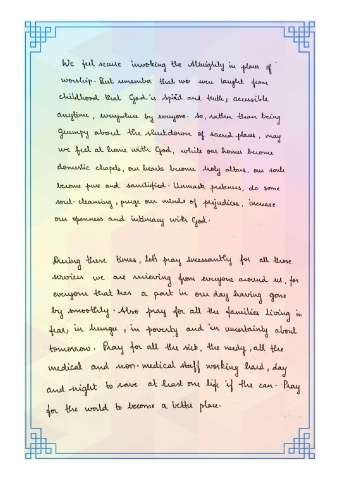 We feel secure invoking the Almighty in places of
worship. But remember that we were taught from
childhood that God is Spirit and truth, accessible
anytime, everywhere by everyone. So, rather than being
Grumpy about the shutdown of sacred places, may
we feel at home with God, while our homes become
domestic chapels, our hearts become holy altars, our souls
become pure and sanctified. Unmask pretenses, do some
soul-cleansing, purge our minds of prejudices, increase
our openness and intimacy with God.
During these times, let's pray incessantly for all those
services we are receiving from everyone around us, for
everyone that has a part in our day having gone
by smoothly. Also pray for all the families living in
fear, in hunger, in poverty and in uncertainty about
tomorrow. Pray for all the sick, the needy, all the
medical and non-medical staff working hard, day
and night to save at least one life if the can. Pray
for the world to become a better place.